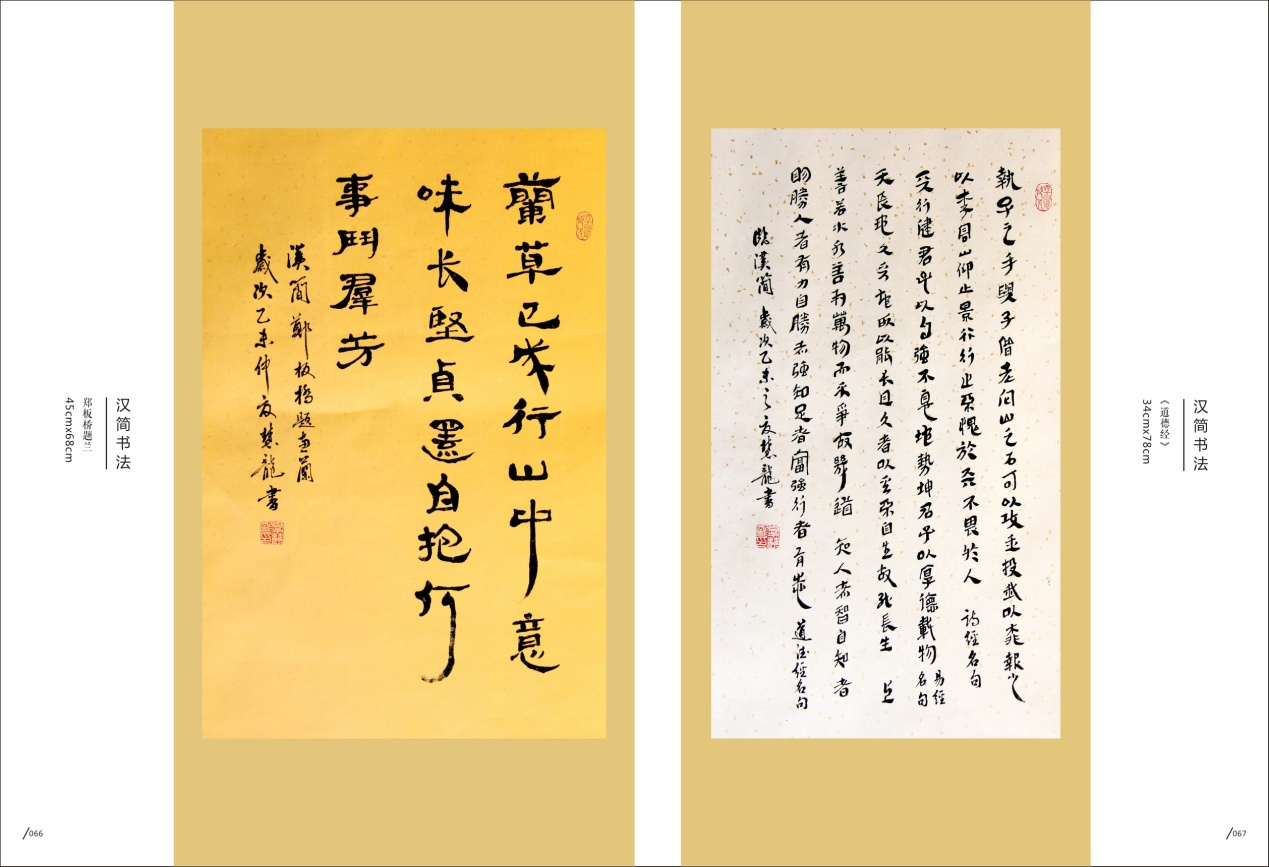 汉简书法
郑板桥题兰
45cmx68cm
蘭草已成行山中意
味长堅貞還自抱何
事鬥羣芳
漢簡 鄭板橋題畫蘭
歲次乙未仲夏慧龍書
/066
汉简书法
《道德经》
34cmx78cm
執子之手與子偕老山之石可以攻玉投我以桃報之
以李高山仰止景行行止不愧於天不畏於人 詩經名句
天行健君子以自強不息地勢坤君子以厚德載物 易經名句
天長地久天地所以能長且久者以其不自生故能長生 上
善若水水善利萬物而不爭故幾於道 知人者智自知者
明勝人者有力自勝者強知足者富強行者有志 道德經名句
臨漢簡 歲次乙未之夏慧龍書
/067